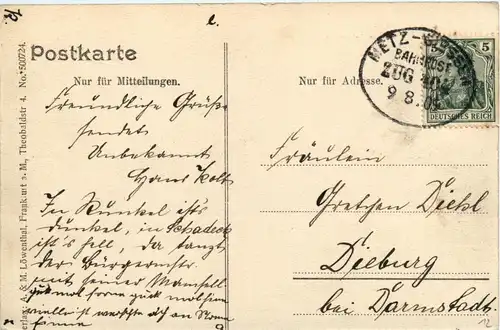 Postkarte
Nur für Mitteilungen.
Nur für Adresse.
Verlag: A. & M. Löwenthal, Frankfurt a. M., Theobaldstr 4. No. 500724.
METZ-GIESSEN
BAHNPOST
ZUG
9 8.09
5
DEUTSCHES REICH
Freundliche Grüße
sendet
Unbekannt
Hans Kolb
In Runkel ist's
dunkel, in Schadeck
ist's hell, da tanzt
der Bürgermstr.
mit seiner Mamsell
mol forne
Fräulein
Gretchen Diehl
Dieburg
bei Darmstadt